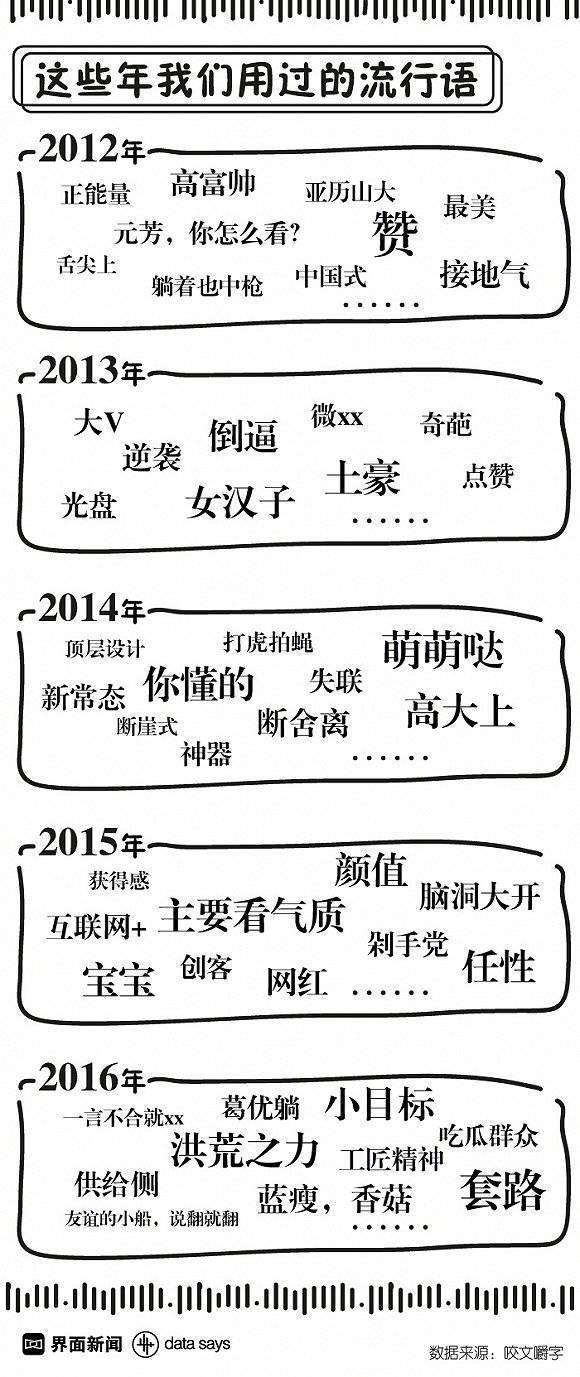 这些年我们用过的流行语
2012年
正能量 高富帅 亚历山大 最美
元芳，你怎么看？ 赞
舌尖上 躺着也中枪 中国式 接地气
……
2013年
大V 倒逼 微xx 奇葩
逆袭 土豪 点赞
光盘 女汉子
……
2014年
顶层设计 打虎拍蝇 萌萌哒
新常态 你懂的 失联 高大上
断崖式 断舍离
神器 ……
2015年
获得感 颜值 脑洞大开
互联网+ 主要看气质 剁手党
宝宝 创客 网红 …… 任性
2016年
一言不合就xx 葛优躺 小目标
洪荒之力 工匠精神 吃瓜群众
供给侧 蓝瘦，香菇 套路
友谊的小船，说翻就翻 ……
界面新闻 data says
数据来源：咬文嚼字